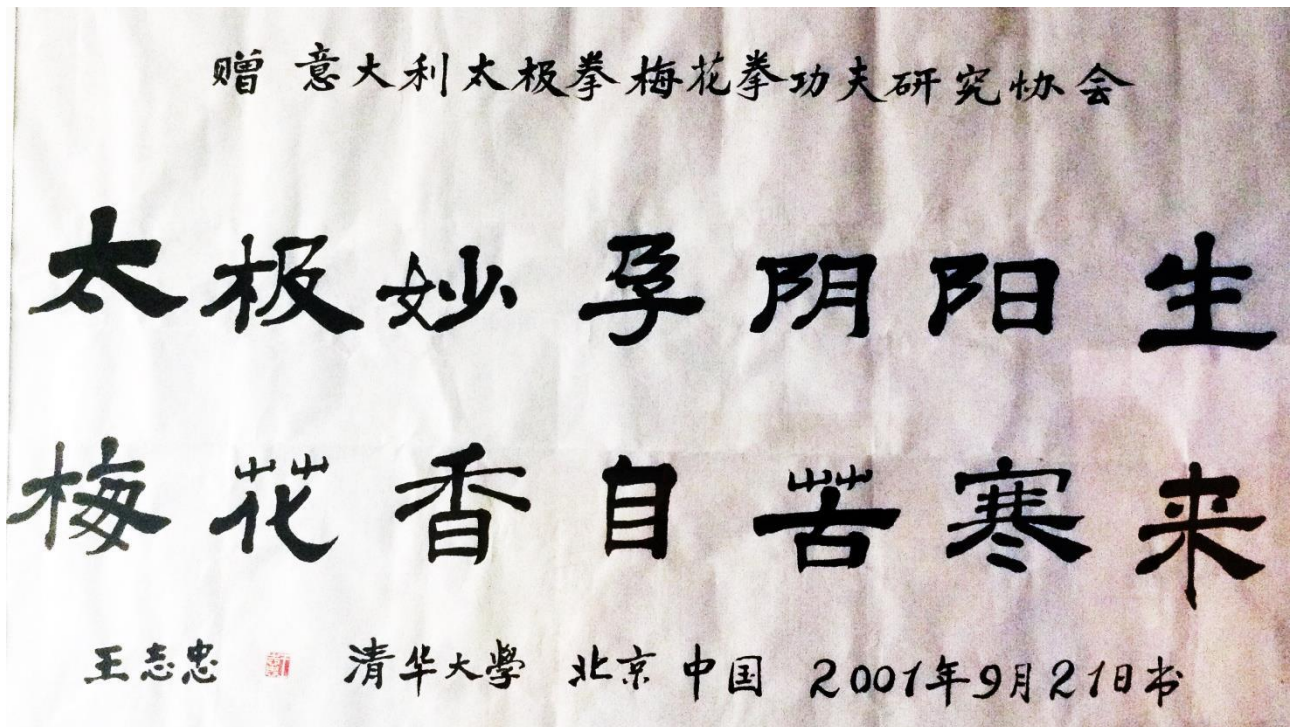 赠 意大利太极拳梅花拳功夫研究协会
太极妙孕阴阳生
梅花香自苦寒来
王志忠 清华大學 北京 中国 2001年9月21日书